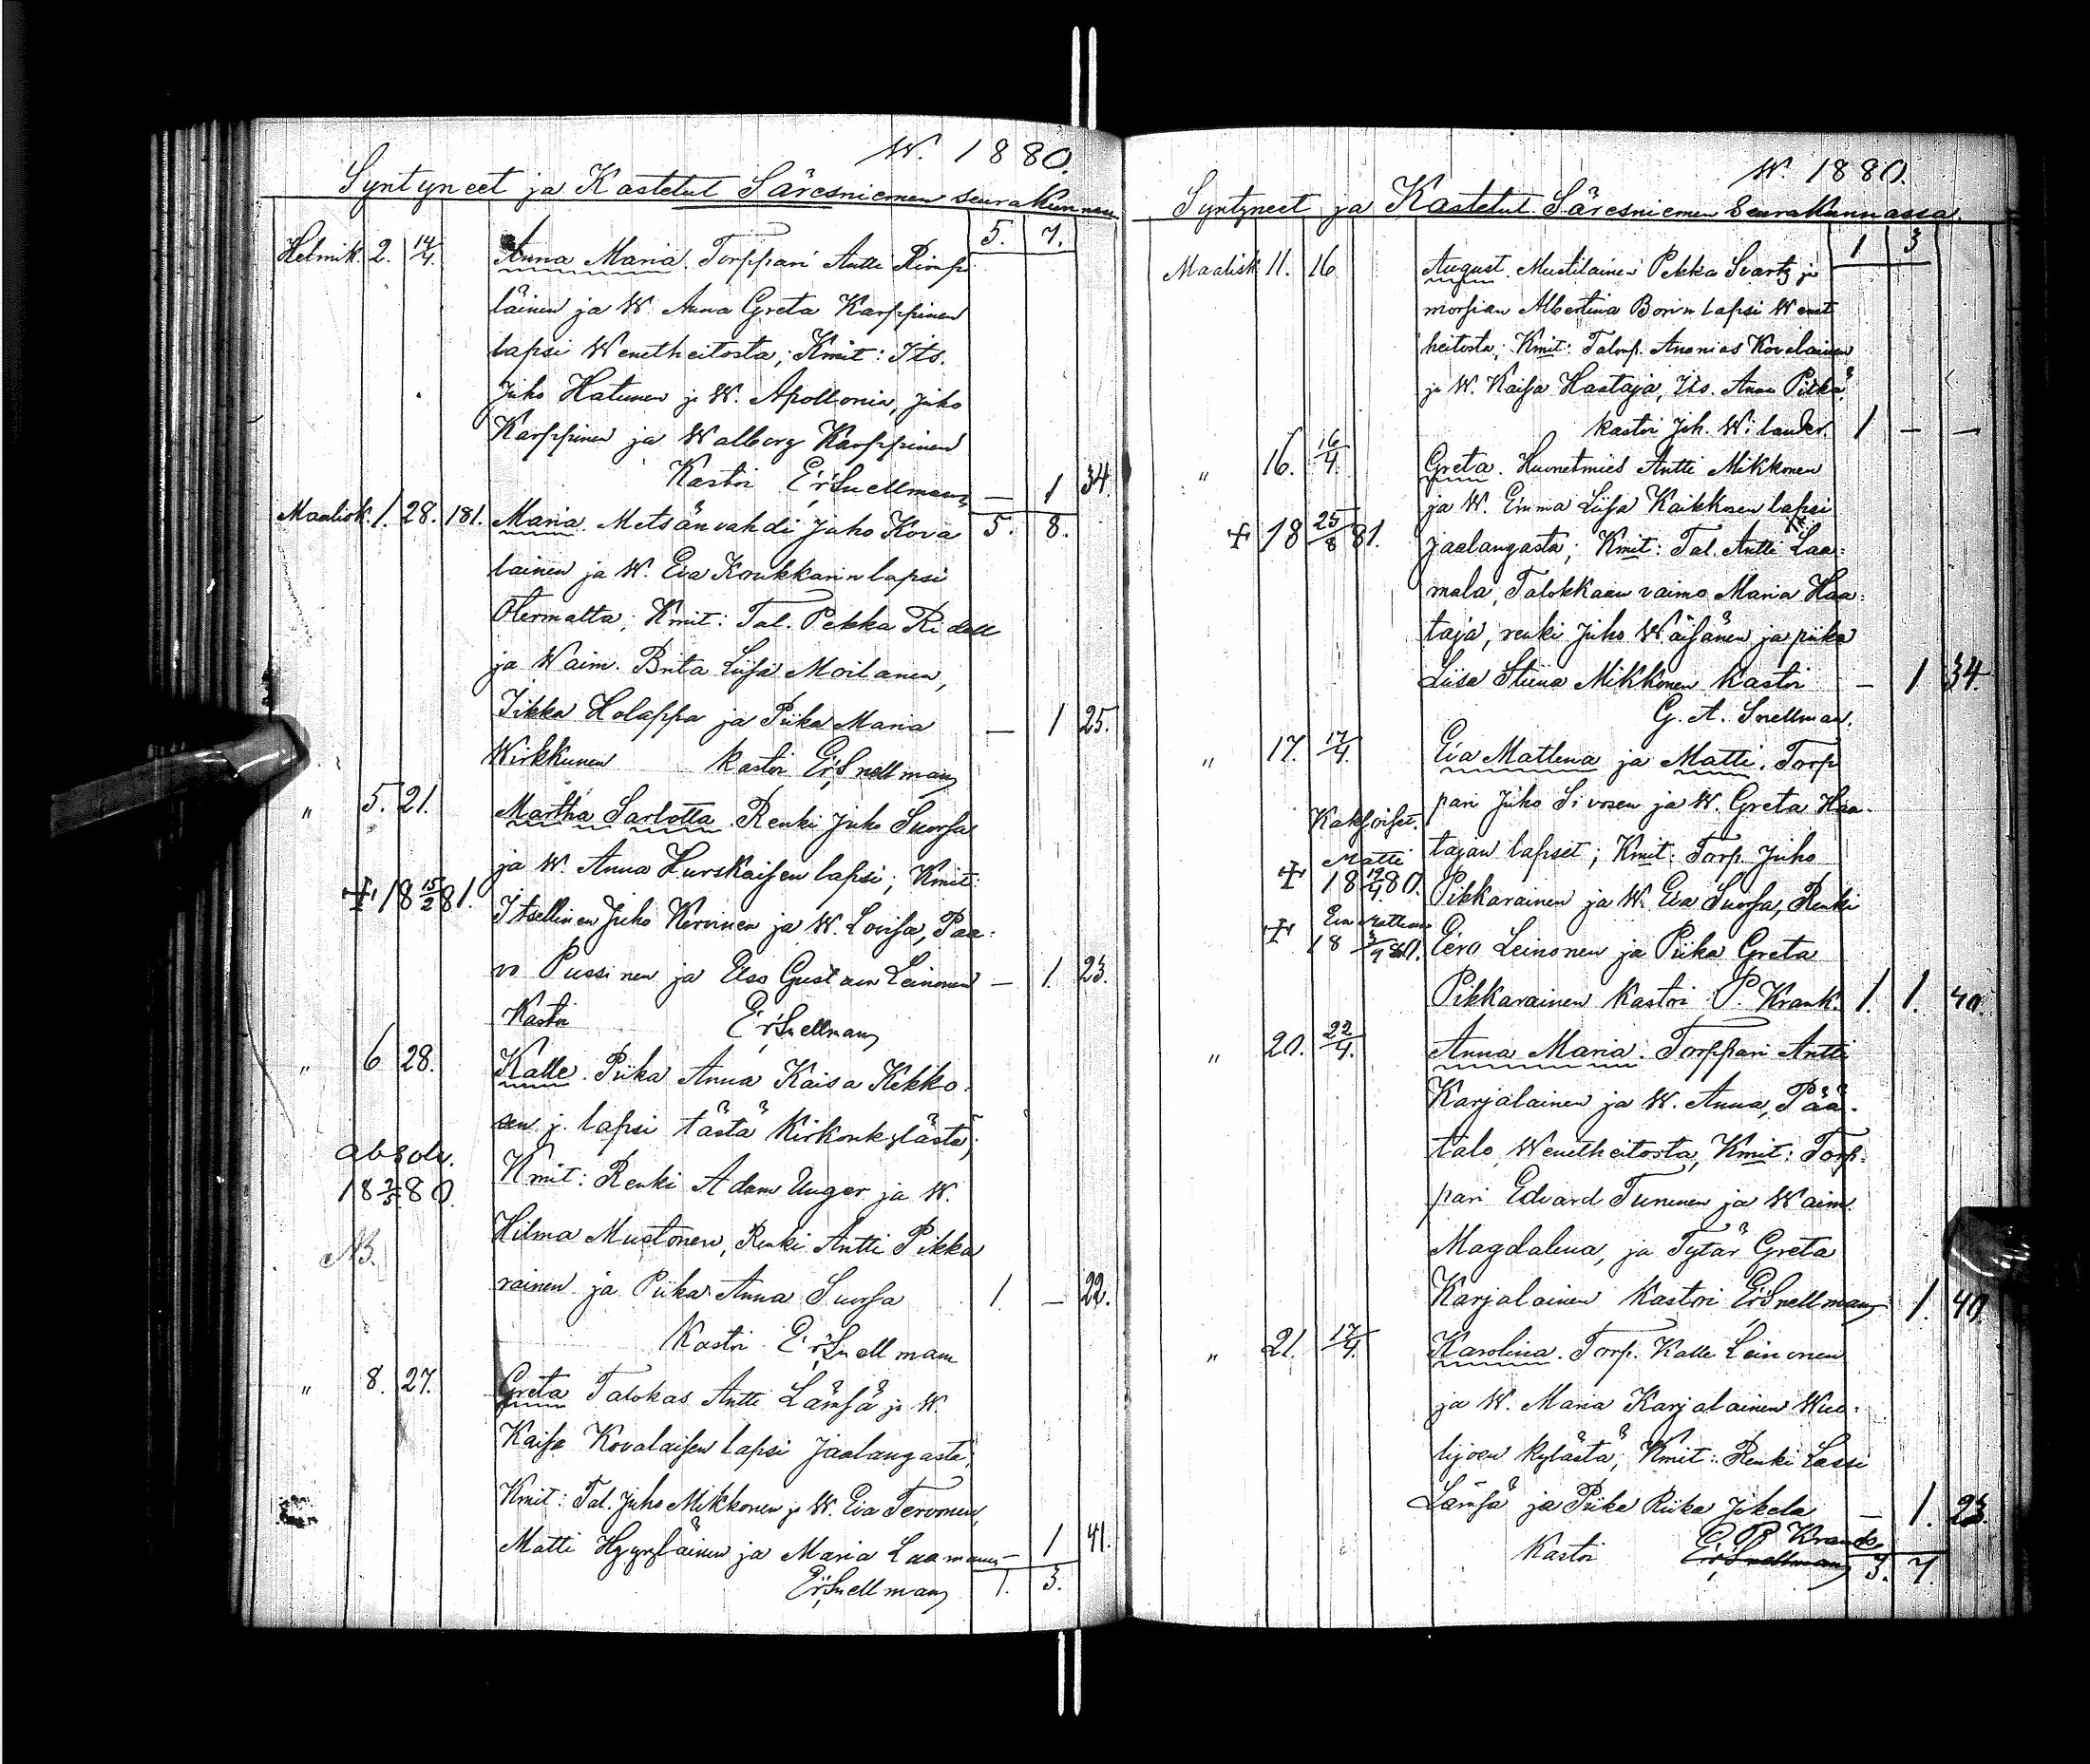 W. 1880.
Syntyneet ja Kastetut Säresniemen seurakunnan
5. 7.
Helmik. 2. 14/4. Anna Maria. Torppari Antti Rimpi
läinen ja W. Anna Greta Karppinen
lapsi Wenetheitosta; Kmit: Its.
Juho Hatunen ja W. Apollonia, Juho
Karppinen ja Walborg Karppinen
Kastoi Er. Snellman — 1 34.
Maalisk. 1. 28. 181. Maria. Metsänvahdi Juho Kova 5. 8.
lainen ja W. Eva Koukkarin lapsi
Otermalta; Kmit: Tal. Pekka Ridell
ja Waim. Brita Liisa Moilanen,
Iikka Holappa ja Piika Maria — 1 25.
Wirkkunen kastoi Er. Snellman
" 5. 21. Martha Sarlotta. Renki Juho Suorsa
ja W. Anna Hurskaisen lapsi; Kmit:
+ 18 15/2 81. Itsellinen Juho Kervinen ja W. Lovisa, Paa-
vo Pussinen ja Elso Gustava Leinonen — 1. 23.
Kastoi Er. Snellman
" 6 28. Kalle. Piika Anna Kaisa Kekko-
sen j. lapsi tästä Kirkonkylästä;
absolv.
18 2/5 80. Kmit: Renki Adam Unger ja W.
Hilma Mustonen, Renki Antti Pikka
NB.
rainen ja Piika Anna Suorsa 1. — 22.
Kastoi Er. Snellman
" 8. 27. Greta Talokas Antti Lämsä ja W.
Kaisa Kovalaisen lapsi Jaalangasta;
Kmit: Tal. Juho Mikkonen ja W. Eva Tervonen,
Matti Hyyryläinen ja Maria Laamanen — 1 41.
Er. Snellman 1. 3.
W. 1880.
Syntyneet ja Kastetut Säresniemen Seurakunnassa.
1 3
Maalisk. 11. 16 August. Mustilainen Pekka Svartz ja
morsian Albertina Borin lapsi Wenet
heitosta; Kmit: Talonp. Ananias Kovalainen
ja W. Kaisa Haataja, Its. Anna Piika
kastoi Joh. Wilander. 1 — —
" 16. 16/4. Greta. Huonetmies Antti Mikkonen
ja W. Emma Liisa Kaikkosen lapsi
+ 18 25/8 81. Jaalangasta; Kmit: Tal. Antti Laa-
mala, Talokkaan vaimo Maria Haa-
taja, renki Juho Wäisänen ja piika
Liisa Stiina Mikkonen kastoi — 1 34.
G. A. Snellman.
" 17. 17/4. Eva Mathena ja Matti. Torp
pari Juho Sivosen ja W. Greta Haa-
Kaksoiset.
tajan lapset; Kmit: Torp. Juho
Matti
+ 18 19/4 80. Pikkarainen ja W. Eva Suorsa, Renki
Eva Mathena
+ 18 3/9 80. Eero Leinonen ja Piika Greta
Pikkarainen Kastoi P. Krank. 1. 1. 40.
" 20. 22/4. Anna Maria. Torppari Antti
Karjalainen ja W. Anna, Pää-
talo, Wenetheitosta, Kmit: Torp-
pari Edvard Tuninen ja Waim.
Magdalena, ja Tytär Greta
Karjalainen Kastoi Er. Snellman 1. 40.
" 21. 17/4. Karolina. Torp. Kalle Leinonen
ja W. Maria Karjalainen Wuo-
lijoen kylästä; Kmit: Renki Lassi
Lämsä ja Piika Riika Jokela — 1. 23.
P. Krank.
Kastoi Er. Snellman 3. 7.